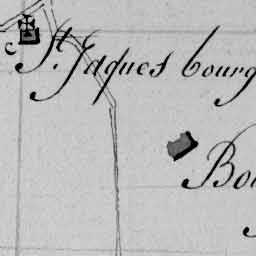 c
St. Jaques bourg
Bo